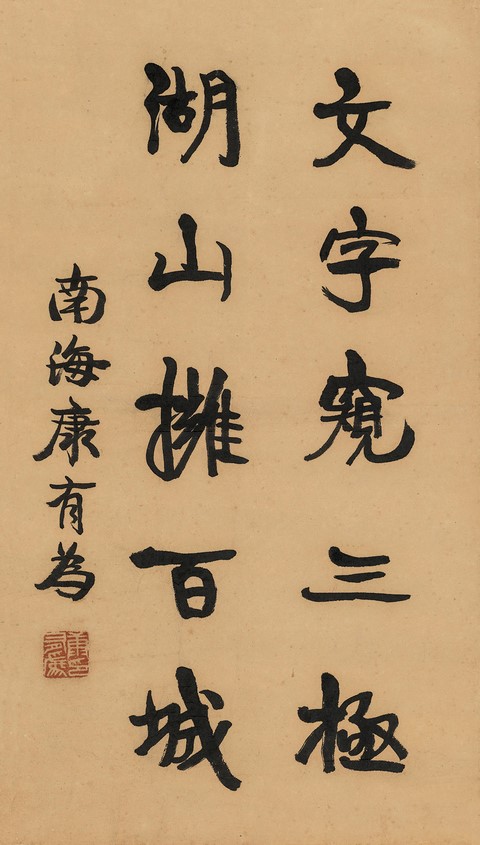 文字窺三極
湖山擁百城
南海康有為